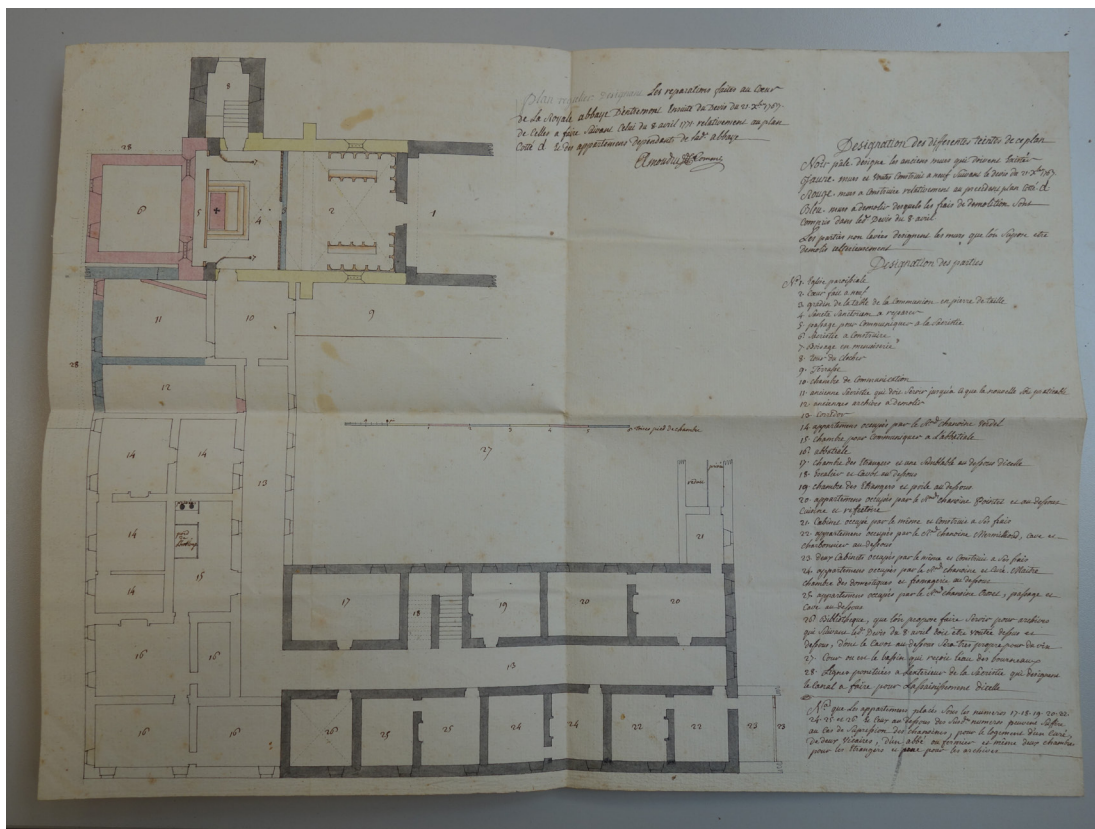 Plan régulier Designant Les reparations faites au Cœur
de La Royale abbaye D'entremont Ensuite du Devis du 21 Xbre 1767.
de Celles a faire Suivant Celui du 8 avril 1771 relativement au plan
Cotté d et des appartemens Dependants de ladte abbaye
Designation des differentes teintes de ce plan
Noir pâle designe les anciens murs qui doivent
Jaune, murs et voutes Construits a neuf Suivant le devis du 21 Xbre 1767
Rouge, murs a Construire relativement au precedent plan Cotté d
Bleu, murs a demolir desquels les frais de demolition Sont
Compris dans ledt Devis du 8 avril
Les parties non lavées designent les murs que l'on Supose etre
demolis
Designation des parties
Nos 1. Eglise paroissiale
2. Cœur fait a neuf
3. gradin de la table de la Communion en pierre de taille
4. Sancta Sanctorum a reparer
5. passage pour Communiquer a la Sacristie
6. Sacristie a Construire
7. Boisage en menuiserie
8. Tour du Clocher
9. Terrasse
10. chambre de Communication
11. ancienne Sacristie qui doit Servir jusqu'a ce que la nouvelle Soit
12. anciennes archives a demolir
13. Corridor
14. appartement occupés par le Rd chanoine
15. chambre pour Communiquer a l'abbatiale
16. abbatiale
17. chambre des Etrangers et une Semblable au dessous d'icelle
18. Escalier et Caves au dessous
19. chambre des Etrangers et poile au dessous
20. appartement occupés par le Rd chanoine Pointet et au dessous
Cuisine et refectoire
21. Cabinet occupé par le même et Construit a Ses frais
22. appartement occupés par le Rd chanoine Vermilliod, cave et
charbonnier au dessous
23. deux Cabinets occupés par le même et Construits a Ses frais
24. appartement occupés par le Rd chanoine et Curé
chambre des domestiques et fromagerie au dessous
25. appartement occupés par le Rd chanoine, passage et
cave au dessous
26. Bibliotheque, que l'on propose faire Servir pour archives
qui Suivant ledt Devis du 8 avril doit etre voutée dessus et
dessous, dont la Cave au dessous Sera tres propre pour du vin
27. Cour ou est le bassin qui reçoit l'eau des bourneaux
28. Lignes ponctuées a l'exterieur de la Sacristie qui designent
le Canal a faire pour l'assainissement d'icelle
Na que les appartements placés Sous les numeros 17. 18. 19. 20. 22.
24. 25 et 26 et Ceux au dessous des Susdts numeros peuvent Suffire
au Cas de Supression des chanoines, pour le logement d'un Curé
de deux Vicaires, d'un abbé ou fermier et même deux chambres
pour les Etrangers et pour les archives
8
28
6
5
4
3
2
1
7
7
11
10
9
28
12
14
14
13
27
14
15
14
16
16
16
16
17
18
19
20
20
21
13
26
25
25
24
24
22
22
23
23